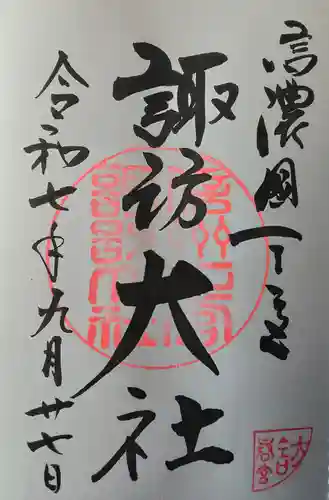 信濃國一之宮
諏訪大社
令和七年九月廿七日